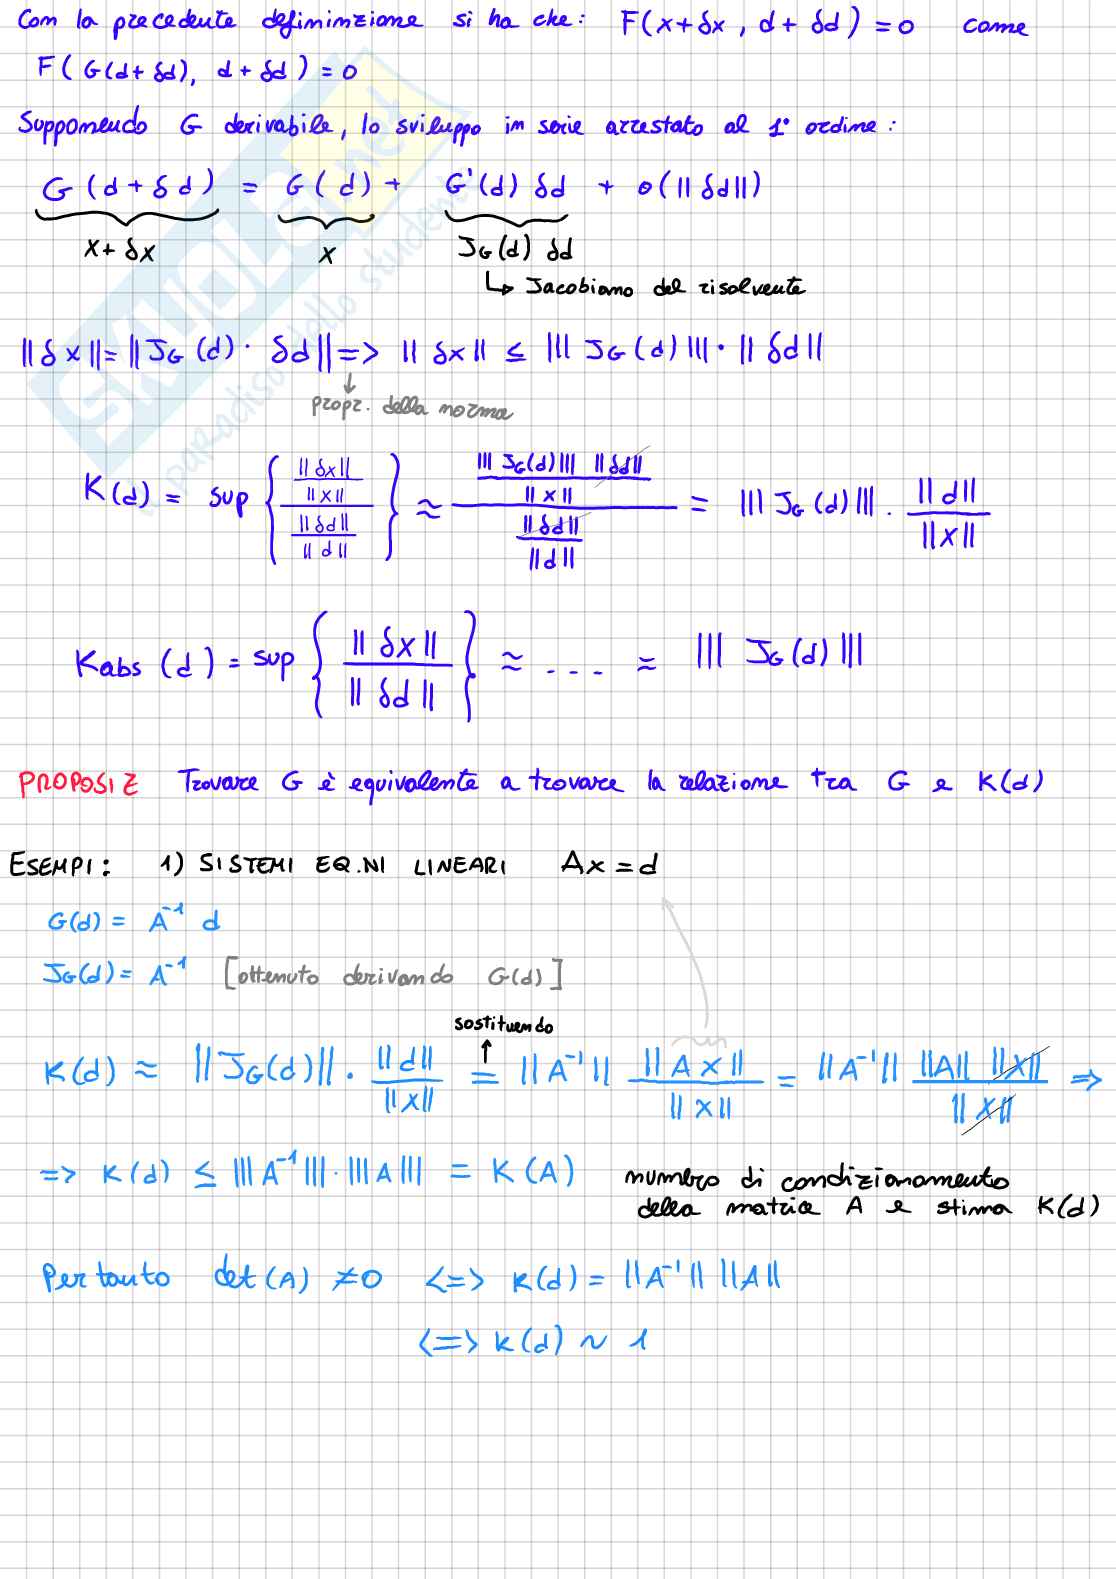 Con la precedente definimzione si ha che: F(x+δx, d+δd) = 0 come
F(G(d+δd), d+δd) = 0
Supponendo G derivabile, lo sviluppo in serie arrestato al 1° ordine:
G(d+δd) = G(d) + G'(d) δd + o(||δd||)
x+δx x J_G(d) δd
↳ Jacobiano del risolvente
||δx|| = ||J_G(d) · δd|| => ||δx|| ≤ |||J_G(d)||| · ||δd||
↓
propr. della norma
K(d) = sup { (||δx|| / ||x||) / (||δd|| / ||d||) } ≈ (|||J_G(d)||| ||δd|| / ||x||) / (||δd|| / ||d||) = |||J_G(d)||| · ||d|| / ||x||
Kabs(d) = sup { ||δx|| / ||δd|| } ≈ ... ≈ |||J_G(d)|||
PROPOSIZ Trovare G è equivalente a trovare la relazione tra G e K(d)
ESEMPI: 1) SISTEMI EQ.NI LINEARI Ax = d
G(d) = A⁻¹ d
J_G(d) = A⁻¹ [ottenuto derivando G(d)]
sostituendo
↑
K(d) ≈ ||J_G(d)|| · ||d|| / ||x|| = ||A⁻¹|| ||Ax|| / ||x|| = ||A⁻¹|| ||A|| ||x|| / ||x|| =>
=> K(d) ≤ |||A⁻¹||| · |||A||| = K(A) numero di condizionamento
della matrice A e stima K(d)
Pertanto det(A) ≠ 0 <=> K(d) = ||A⁻¹|| ||A||
<=> K(d) ~ 1
SKUOLA.net
il paradiso dello studente